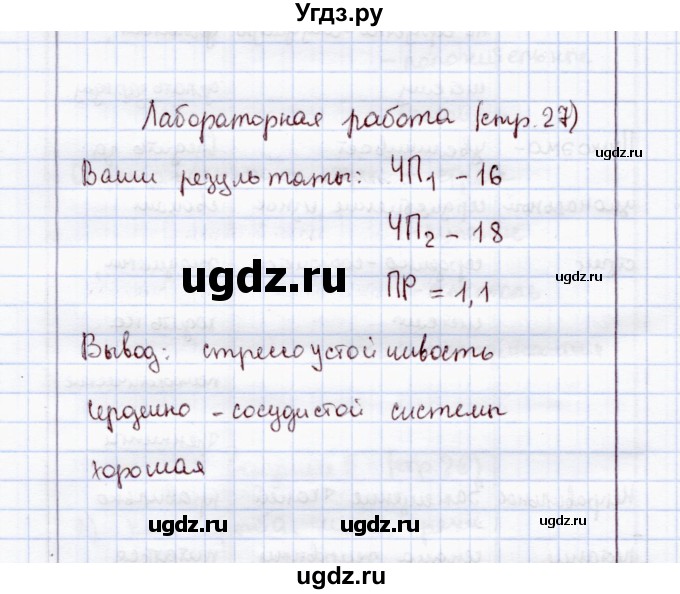 Угдз.ру
Лабораторная работа (стр.27)
ugdz.ru
Ваши результаты: ЧП1 - 16
ЧП2 - 18
ugdz.ru
ugdz.ru
ПР = 1,1
Вывод: стрессоустойчивость
сердечно - сосудистой системы
хорошая
ugdz.ru ugdz.ru ugdz.ru
ugdz.ru